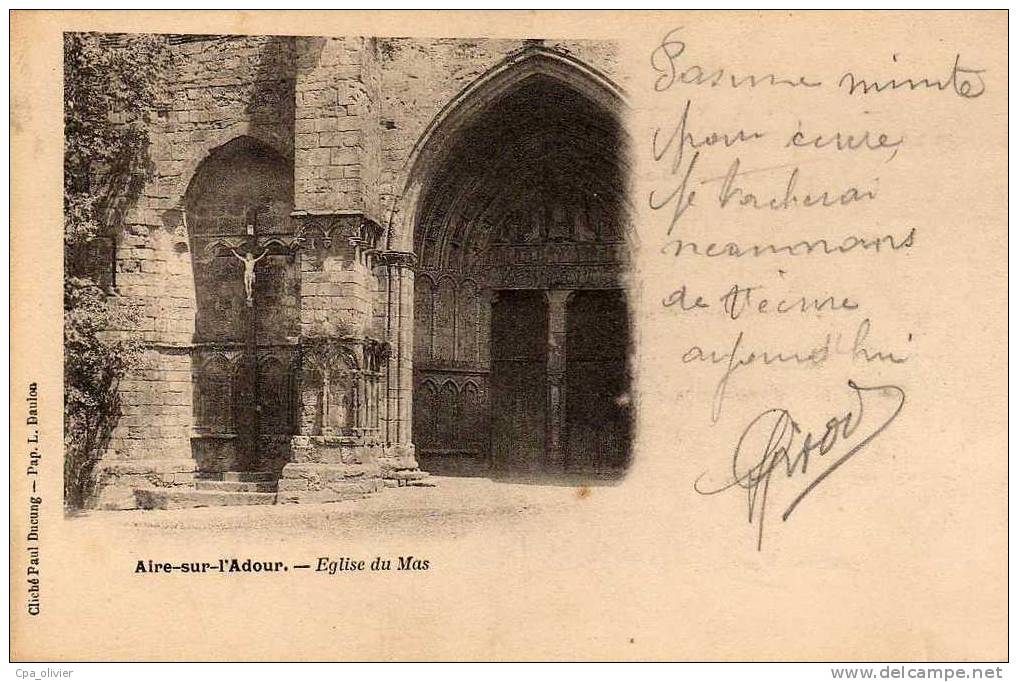 Pas une minute
pour écrire,
je tacherai
néanmoins
de t'écrire
aujourd'hui
Cliché Paul Ducung — Pap. L. Daulon
Aire-sur-l'Adour. — Eglise du Mas
Cpa_olivier
www.delcampe.net